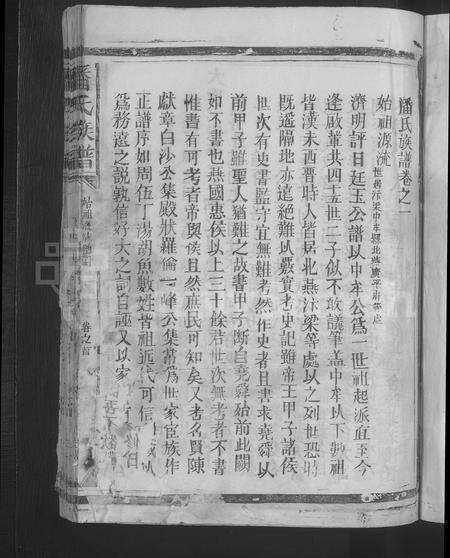 潘氏族譜卷之一
始祖源流
濟明評曰廷玉公譜以中牟公爲一世祖起派直至今
逄啟輩共四十五世二子似不敢議筆蓋中牟以下
皆漢末西晉時人皆居北燕汴梁等處以之列世恐時
既遥隔地亦遠絶難以覈實考史記雖帝王甲子諸侯
世次有史書監守宜無難考然作史者且書求堯舜以
前甲子雖聖人猶難之故書甲子斷自堯舜始前此闕
如不書也燕國惠侯以上三十餘君世次無考者不書
惟書有可考者帝與侯且然庶民可知矣又考名賢陳
獻章白沙公集殿狀羅倫一峰公集當爲世家宦族作
正譜序如周伍丁湯胡魚數姓皆祖近代可信 以
爲務遠之說敦信好大之詞自誣又以家
潘氏族譜
卷之首